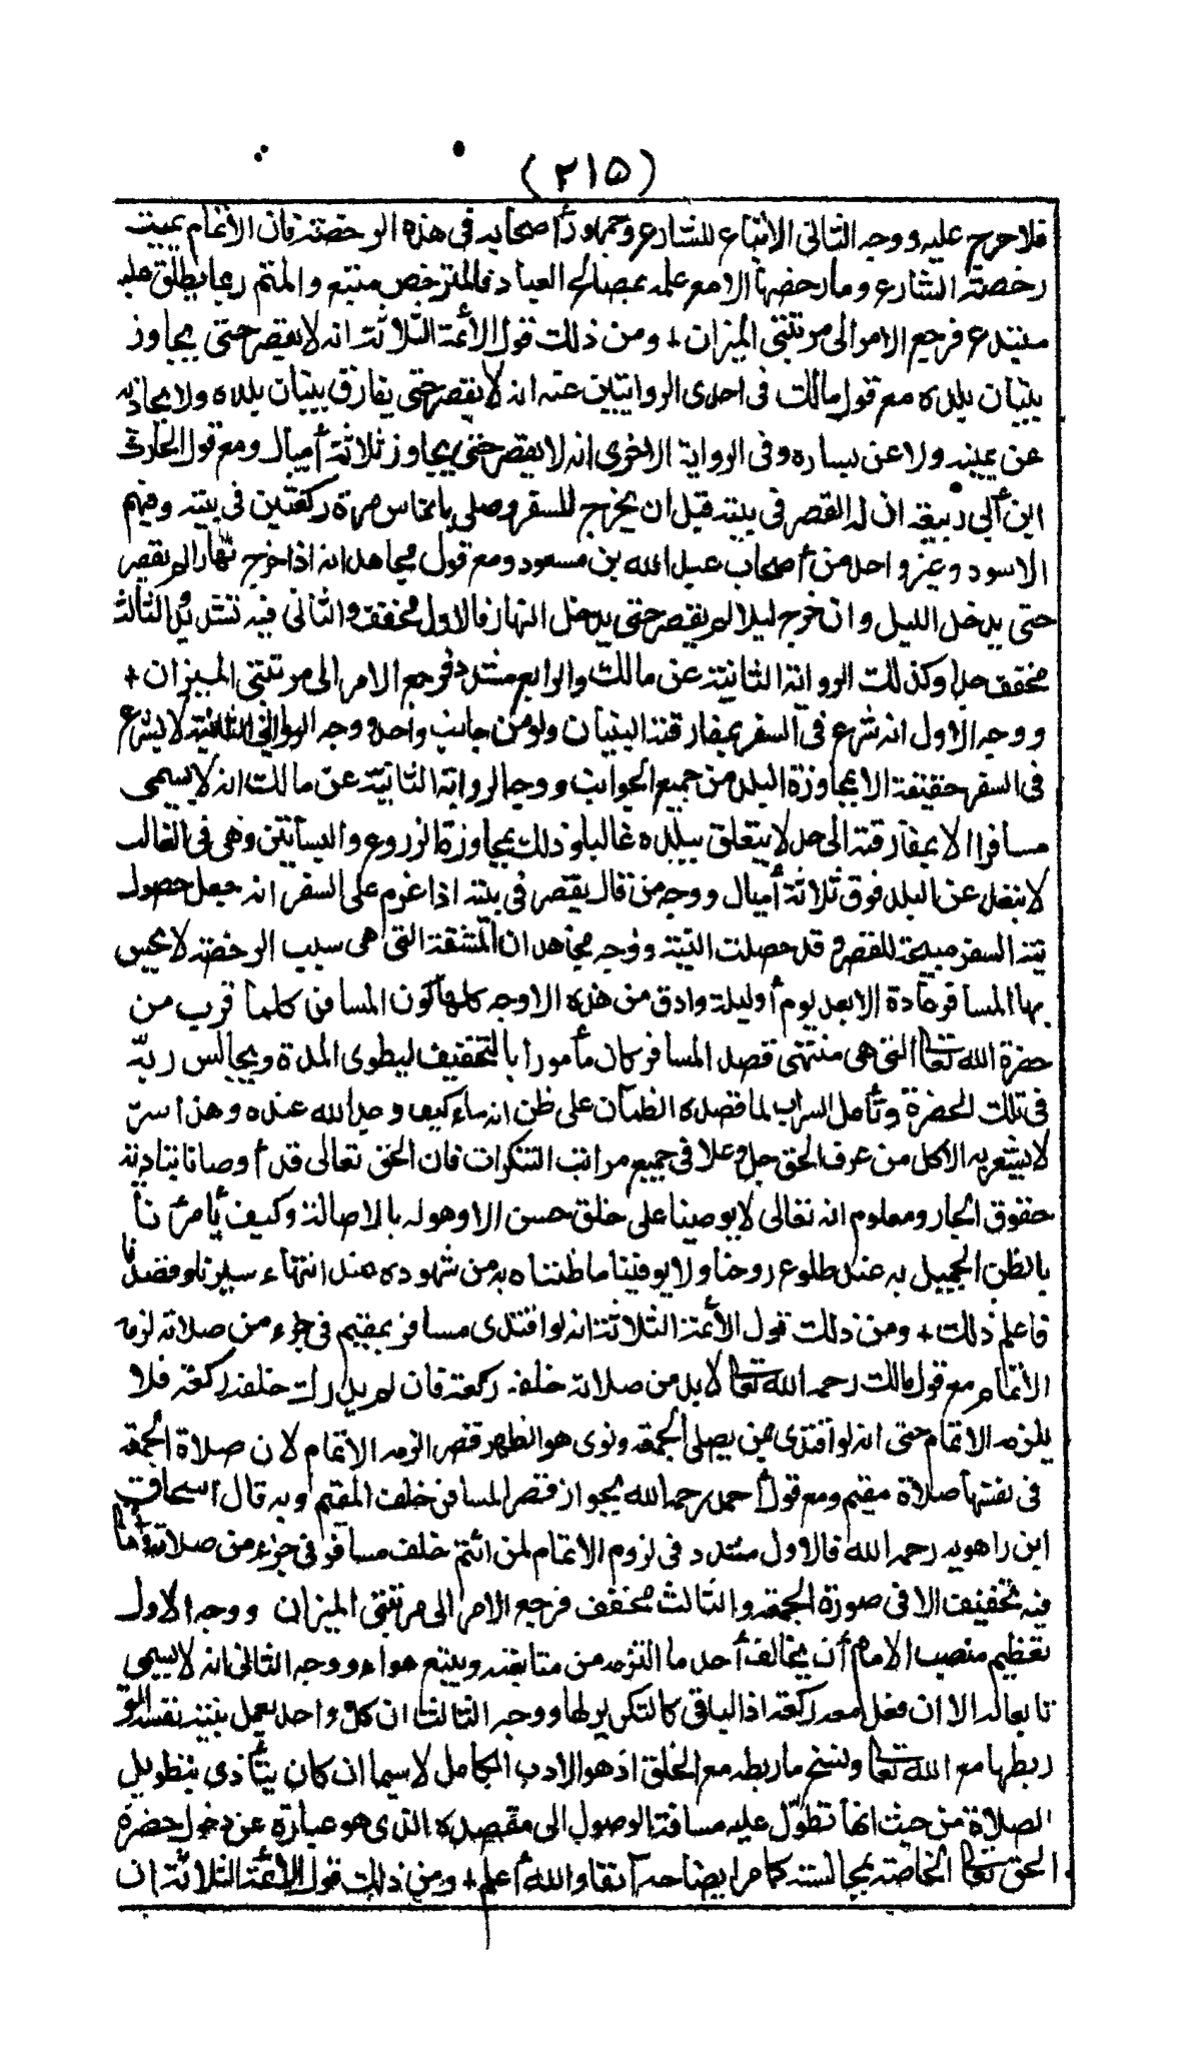 (٢١٥)
فلا حرج عليه ووجه الثاني الاتباع للشارع وجمهور أصحابه في هذه الرخصة فان الاتمام يميت
رخصة الشارع وما رخصها الا مع علمه بمصالح العباد فالمترخص متبع والمتم ربما يطلق عليه
مبتدع فرجع الامر الى مرتبتي الميزان + ومن ذلك قول الأئمة الثلاثة انه لا يقصر حتى يجاوز
بنيان بلده مع قول مالك في احدى الروايتين عنه انه لا يقصر حتى يفارق بنيان بلده ولا يحاذيه
عن يمينه ولا عن يساره وفي الرواية الاخرى انه لا يقصر حتى يجاوز ثلاثة أميال ومع قول الحارث
ابن أبي ربيعة ان له القصر في بيته قبل ان يخرج للسفر وصلى باناس مرة ركعتين في بيته وفيهم
الاسود وغير واحد من أصحاب عبد الله بن مسعود ومع قول مجاهد انه اذا خرج نهارا لم يقصر
حتى يدخل الليل وان خرج ليلا لم يقصر حتى يدخل النهار فالاول مخفف والثاني فيه تشديد والثالث
مخفف جدا وكذلك الرواية الثانية عن مالك والرابع مشدد فرجع الامر الى مرتبتي الميزان +
ووجه الاول انه شرع في السفر بمفارقة البنيان ولو من جانب واحد ووجه الرواية الثانية لا يشرع
في السفر حقيقة الا بمجاوزة البلد من جميع الجوانب ووجه الرواية الثانية عن مالك انه لا يسمى
مسافرا الا بمفارقته الى حد لا يتعلق ببلده غالبا وذلك بمجاوزة الزروع والبساتين وهي في الغالب
لا تبعد عن البلد فوق ثلاثة أميال ووجه من قال يقصر في بيته اذا عزم على السفر انه جعل حصول
نية السفر مبيحة للقصر وقد حصلت النية ووجه مجاهد ان المشقة التي هي سبب الرخصة لا يحس
بها المسافر عادة الا بعد يوم أو ليلة وادق من هذه الاوجه كلها كون المسافر كلما قرب من
حضرة الله تعالى التي هي منتهى قصد المسافر كان مأمورا بالتخفيف ليطوى المدة ويجالس ربه
في تلك الحضرة وتأمل السراب لما قصده الظمآن على ظن انه ماء كيف وجد الله عنده وهذا سر
لا يشعر به الا كل من عرف الحق جل وعلا في جميع مراتب التنكرات فان الحق تعالى قد أوصانا بتأدية
حقوق الجار ومعلوم انه تعالى لا يوصينا على خلق حسن الا وهو له بالاصالة وكيف يأمرنا
بالظن الجميل به عند طلوع روحنا ولا يوفينا ما ظنناه به من شهوده عند انتهاء سيرنا وقصدنا
فاعلم ذلك + ومن ذلك قول الأئمة الثلاثة انه لو اقتدى مسافر بمقيم في جزء من صلاته لزمه
الاتمام مع قول مالك رحمه الله تعالى لا بد من صلاته خلفه ركعة فان لم يدرك خلفه ركعة فلا
يلزمه الاتمام حتى انه لو اقتدى بمن يصلى الجمعة ونوى هو الظهر قصرا لزمه الاتمام لان صلاة الجمعة
في نفسها صلاة مقيم ومع قول أحمد رحمه الله بجواز قصر المسافر خلف المقيم وبه قال اسحاق
ابن راهويه رحمه الله فالاول مشدد في لزوم الاتمام لمن ائتم خلف مسافر في جزء من صلاته والثاني
فيه تخفيف الا في صورة الجمعة والثالث مخفف فرجع الامر الى مرتبتي الميزان ووجه الاول
تعظيم منصب الامام أن يخالف أحد ما التزمه من متابعته ويتبع هواه ووجه الثاني انه لا يسمى
تابعا له الا ان فعل معه ركعة اذ الباقي كالتكرير لها ووجه الثالث ان كل واحد يعمل بنية نفسه التي
ربطها مع الله تعالى ونسخ ما ربطه مع الخلق اذ هو الادب الكامل لا سيما ان كان يتأذى بتطويل
الصلاة من حيث انها تطول عليه مسافة الوصول الى مقصده الذي هو عبارة عن دخول حضرة
الحق تعالى الخاصة بمجالسته كما مر ايضاحه آنفا والله أعلم + ومن ذلك قول الأئمة الثلاثة ان